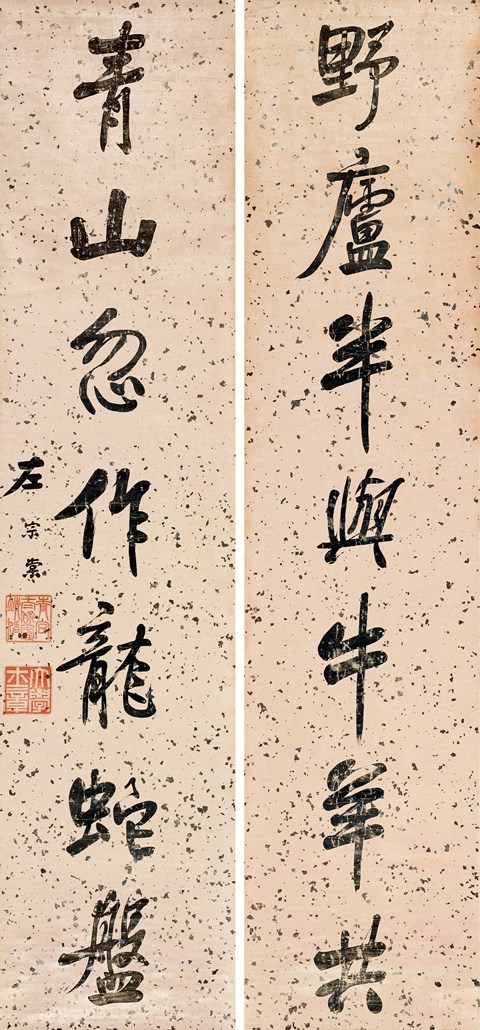 野廬半與牛羊共
青山忽作龍蛇盤
左宗棠
大學士章